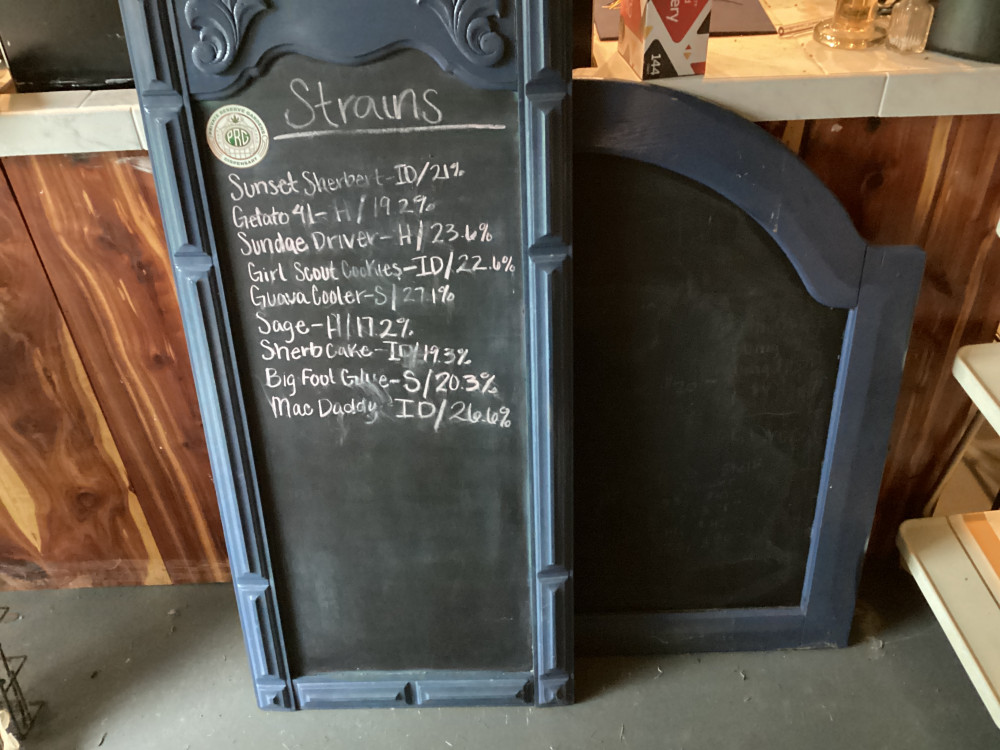 Strains
PRC
DISPENSARY
Sunset Sherbert-ID/21%
Gelato 41-H/19.2%
Sundae Driver-H/23.6%
Girl Scout Cookies-ID/22.6%
Guava Cooler-S/27.1%
Sage-H/17.2%
Sherb Cake-ID/19.3%
Big Foot Glue-S/20.3%
Mac Daddy-ID/26.6%
144